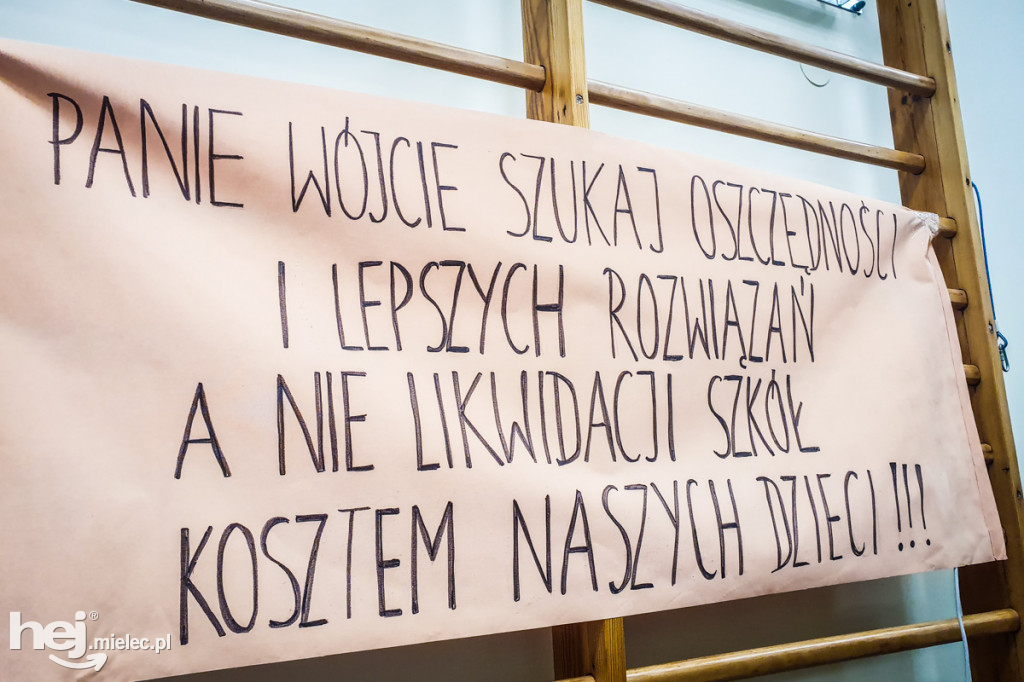 PANIE WÓJCIE SZUKAJ OSZCZĘDNOŚCI
I LEPSZYCH ROZWIĄZAŃ
A NIE LIKWIDACJI SZKÓŁ
KOSZTEM NASZYCH DZIECI!!!
hej.mielec.pl